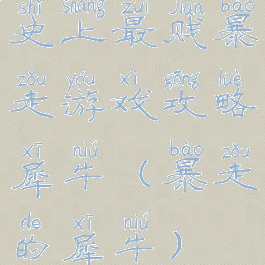 shǐ shàng zuì jiàn bào
史上最贱暴
zǒu yóu xì gōng lüè
走游戏攻略
xī niú bào zǒu
犀牛(暴走
de xī niú
的犀牛)